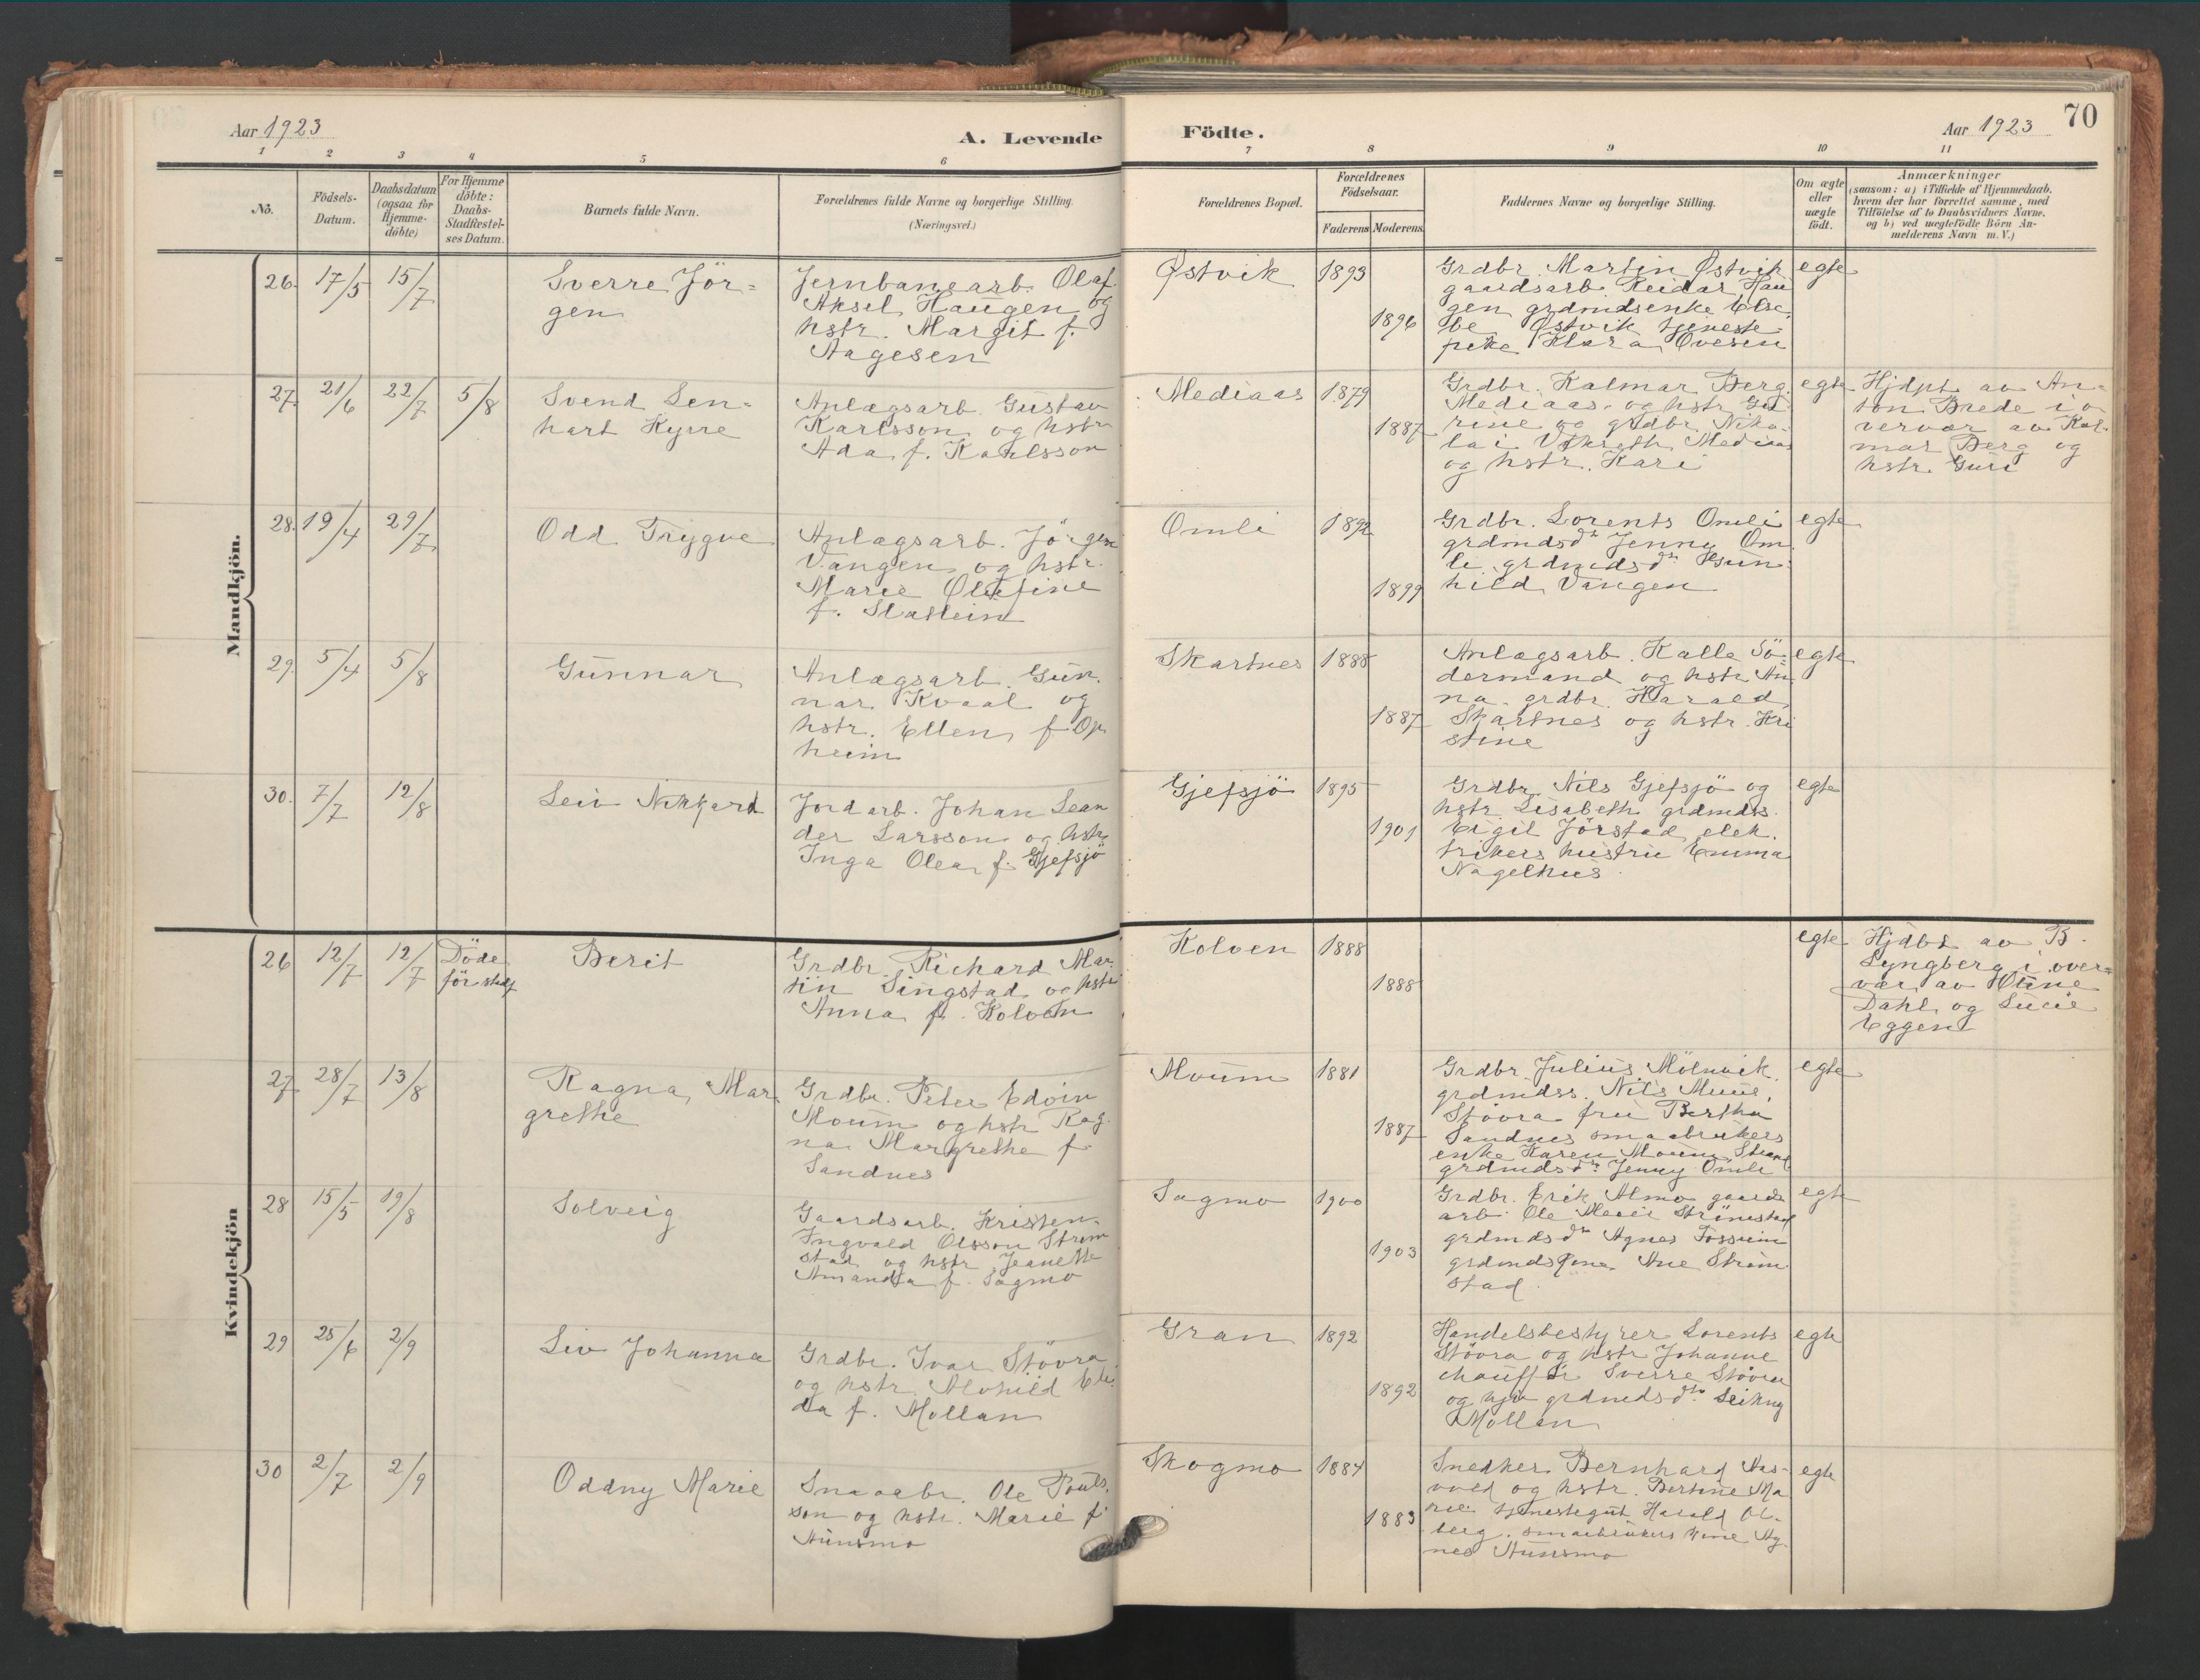 Aar 1923
A. Levende
Födte.
Aar 1923
70
1 2 3 4 5 6 7 8 9 10 11
No.
Födsels-
Datum.
Daabsdatum
(ogsaa for
Hjemme-
döbte)
For Hjemme
döbte:
Daabs-
Stadfæstel-
ses Datum.
Barnets fulde Navn.
Forældrenes fulde Navne og borgerlige Stilling.
(Næringsvei.)
Forældrenes Bopæl.
Forældrenes
Födselsaar.
Faderens Moderens
Faddernes Navne og borgerlige Stilling.
Om ægte
eller
uægte
født.
Anmærkninger
(saasom: a) i Tilfælde af Hjemmedaab.
hvem der har forrettet samme, med
Tilföielse af to Daabsvidners Navne.
og b) ved uægtefödte Börn An-
melderens Navn m. V.)
Mandkjön.
26. 17/5 15/7
Sverre Jör-
gen
Jernbanearb. Olaf
Aksel Haugen og
hstr. Margit f.
Aagesen
Østvik
1893
1896
Grdbr. Martin Østvik
gaardsarb. Reidar Hau
gen grdmdsenke Else-
be Østvik tjeneste-
pike Klara Ovesen
egte
27. 21/6 22/7 5/8
Svend Len-
hart Kyrre
Anlægsarb. Gustav
Karlsson og hstr
Ada f. Karlsson
Mediaas
1879
1887
Grdbr. Kalmar Berg
Mediaas og hstr Gu-
rine og grdbr. Niko-
lai Mediaas
og hstr. Kari
egte
Hjdpt av An-
ton Brede i o
vervær av Kal-
mar Berg og
hstr. Guri
28. 19/4 29/7
Odd Trygve
Anlægsarb. Jörgen
Vangen og hstr.
Marie Olefine
f. Slatlein
Omli
1892
1899
Grdbr. Lorents Omli
grdmdsdtr Jenny Om
li grdmdsdtr Gun-
hild Vangen
egte
29. 5/4 5/8
Gunnar
Anlægsarb. Gun-
nar Kvaal og
hstr. Ellen f Op
heim
Skartnes
1888
1887
Anlægsarb. Kalle Sö-
dermand og hstr An
na. grdbr. Harald
Skartnes og hstr. Kri
stine
egte
30. 7/7 12/8
Leiv Nikkard
Jordarb. Johan Lean
der Larsson og hstr
Inga Olea f. Gjefsjö
Gjefsjö
1895
1901
Grdbr. Nils Gjefsjö og
hstr Lisabeth grdmdss.
Eigil Jörstad elek.
trikers hustru Emma
Nagelhus
egte
Kvindekjön
26 12/7 12/7
Döde
för stadf
Berit
Grdbr. Richard Mar-
tin Singstad og hstr
Anna f. Kolven
Kolven
1888
1888
egte
Hjdbt av B.
Lyngberg i over-
vær av Oline
Dahl og Lucie
Eggen
27 28/7 13/8
Ragna Mar
grethe
Grdbr. Peter Edvin
Moum og hstr Rag-
na Margrethe f
Sandnes
Moum
1881
1887
Grdbr Julius Mölnvik
grdmdss. Nils Muus,
Stövra fru Bertha
Sandnes smaabrukers
enke Karen Moum
grdmdsdtr Jenny Omli
egte
28 15/5 19/8
Solveig
Gaardsarb. Kristen
Ingvald Olsson Ström
stad og hstr Jeanette
Amanda f. Sagmo
Sagmo
1900
1903
Grdbr. Erik Almo gaards
arb. Ole Strömstad
grdmdsdtr Agnes Fossum
grdmdskone Ane Ström
stad
egte
29 25/6 2/9
Liv Johanna
Grdbr. Ivar Stövra
og hstr Alvhild Eli-
da f. Mollan
Gran
1892
1892
Handelsbestyrer Lorents
Stövra og hstr Johanne
chaufför Sverre Stövra
og grdmdsdtr.
Mollan
egte
30 2/7 2/9
Oddny Marie
Smaabr. Ole Pouls.
son og hstr. Marie f
Aunsmo
Skogmo
1884
1883
Snedker Bernhard Aas-
vold og hstr. Bertine Ma
rie. tjenestegut Harald Ol-
berg. smaabrukers kone Ag-
nes Aunsmo
egte